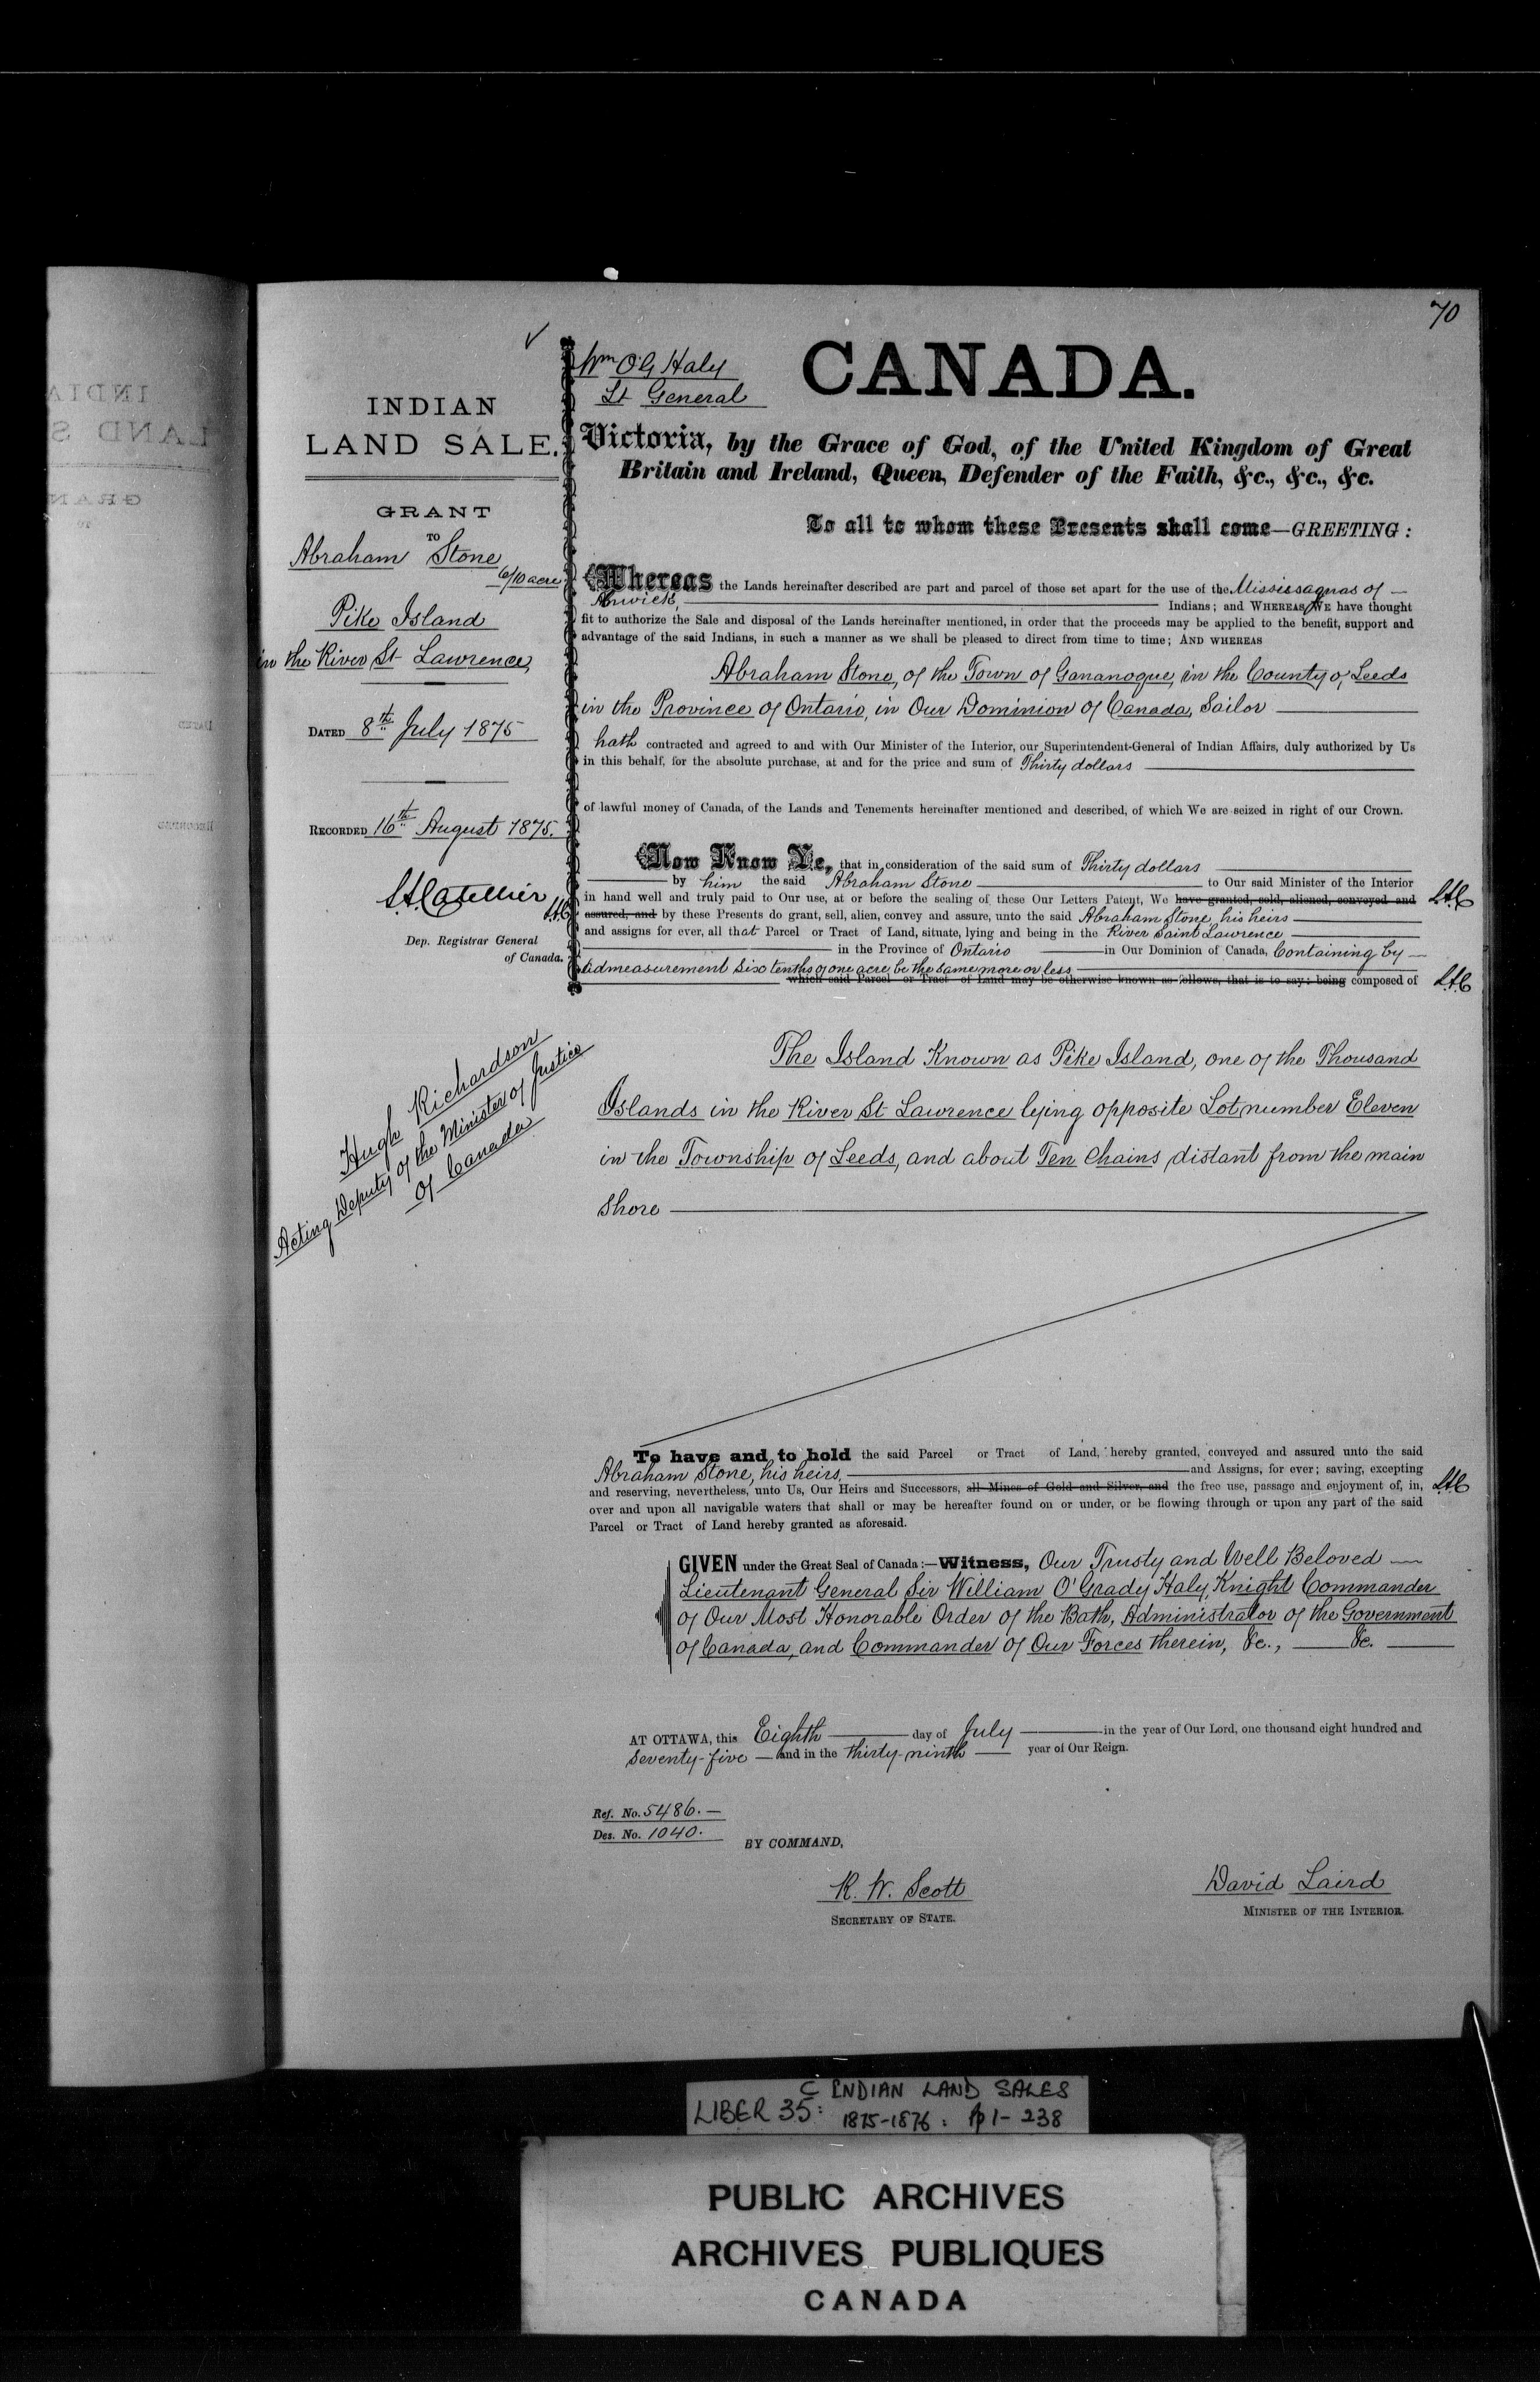 70
Wm O'G Haly
Lt General
CANADA.
INDIAN
LAND SALE.
GRANT
TO
Abraham Stone
6/10 acre
Pike Island
in the River St Lawrence,
DATED 8th July 1875
RECORDED 16th August 1875.
Dep. Registrar General
of Canada.
Hugh Richardson
Acting Deputy of the Minister of Justice
of Canada
Victoria, by the Grace of God, of the United Kingdom of Great
Britain and Ireland, Queen, Defender of the Faith, &c., &c., &c.
To all to whom these Presents shall come—GREETING:
Whereas the Lands hereinafter described are part and parcel of those set apart for the use of the Mississaguas of
Alnwick, Indians; and WHEREAS WE have thought
fit to authorize the Sale and disposal of the Lands hereinafter mentioned, in order that the proceeds may be applied to the benefit, support and
advantage of the said Indians, in such a manner as we shall be pleased to direct from time to time; AND WHEREAS
Abraham Stone, of the Town of Gananoque, in the County of Leeds
in the Province of Ontario, in Our Dominion of Canada, Sailor
hath contracted and agreed to and with Our Minister of the Interior, our Superintendent-General of Indian Affairs, duly authorized by Us
in this behalf, for the absolute purchase, at and for the price and sum of Thirty dollars
of lawful money of Canada, of the Lands and Tenements hereinafter mentioned and described, of which We are seized in right of our Crown.
Now Know Ye, that in consideration of the said sum of Thirty dollars
by him the said Abraham Stone to Our said Minister of the Interior
in hand well and truly paid to Our use, at or before the sealing of these Our Letters Patent, We have granted, sold, aliened, conveyed and
assured, and by these Presents do grant, sell, alien, convey and assure, unto the said Abraham Stone, his heirs
and assigns for ever, all that Parcel or Tract of Land, situate, lying and being in the River Saint Lawrence
in the Province of Ontario in Our Dominion of Canada, Containing by
admeasurement Six tenths of one acre be the same more or less
which said Parcel or Tract of Land may be otherwise known as follows, that is to say: being composed of
The Island Known as Pike Island, one of the Thousand
Islands in the River St Lawrence lying opposite Lot number Eleven
in the Township of Leeds, and about Ten Chains distant from the main
shore
To have and to hold the said Parcel or Tract of Land, hereby granted, conveyed and assured unto the said
Abraham Stone, his heirs, and Assigns, for ever; saving, excepting
and reserving, nevertheless, unto Us, Our Heirs and Successors, all Mines of Gold and Silver, and the free use, passage and enjoyment of, in,
over and upon all navigable waters that shall or may be hereafter found on or under, or be flowing through or upon any part of the said
Parcel or Tract of Land hereby granted as aforesaid.
GIVEN under the Great Seal of Canada:—Witness, Our Trusty and Well Beloved
Lieutenant General Sir William O'Grady Haly, Knight Commander
of Our Most Honorable Order of the Bath, Administrator of the Government
of Canada, and Commander of Our Forces therein, &c., &c.
AT OTTAWA, this Eighth day of July in the year of Our Lord, one thousand eight hundred and
Seventy-five and in the thirty-ninth year of Our Reign.
Ref. No. 5486.
Des. No. 1040.
BY COMMAND,
R. W. Scott
SECRETARY OF STATE.
David Laird
MINISTER OF THE INTERIOR.
C INDIAN LAND SALES
LIBER 35: 1875-1876: pp 1-238
PUBLIC ARCHIVES
ARCHIVES PUBLIQUES
CANADA